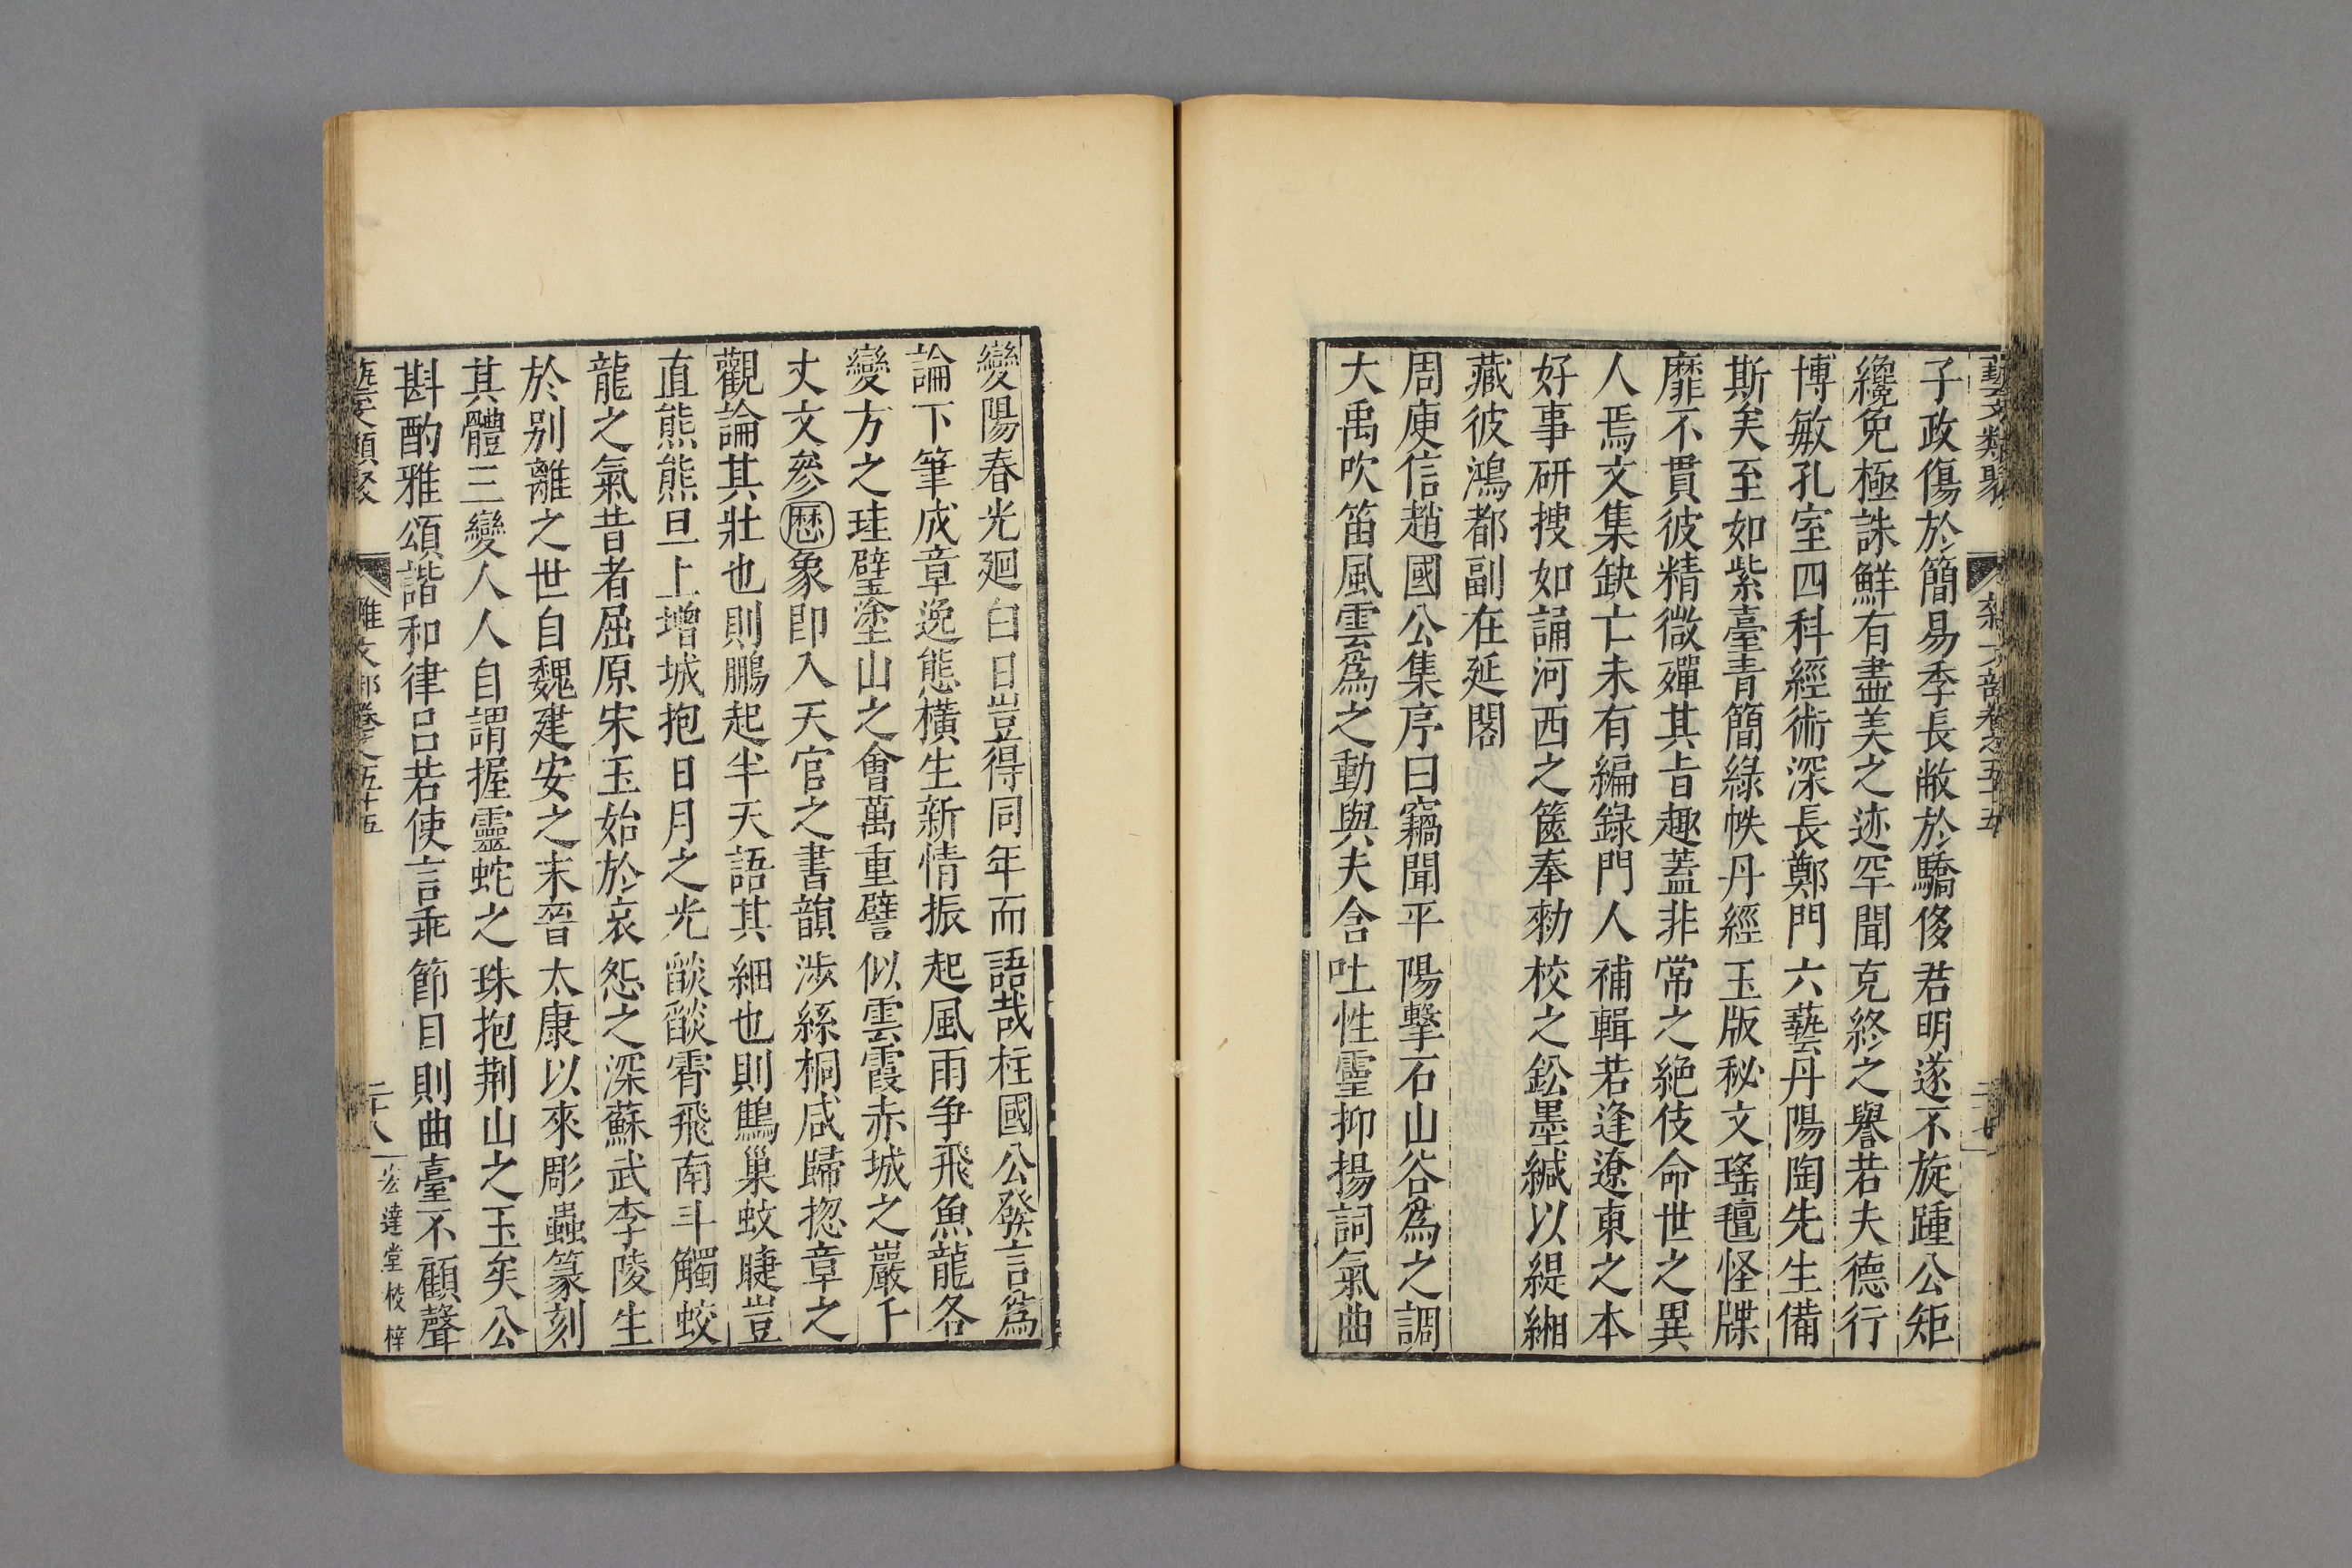 藝文類聚 雜文部卷之五十五 二十七
子政傷於簡易季長敝於驕侈君明遂不旋踵公矩
纔免極誅鮮有盡美之迹罕聞克終之譽若夫德行
博敏孔室四科經術深長鄭門六藝丹陽陶先生備
斯矣至如紫臺青簡綠帙丹經玉版秘文瑤罎怪牒
靡不貫彼精微殫其旨趣蓋非常之絕伎命世之異
人焉文集缺亡未有編錄門人補輯若逢遼東之本
好事研搜如誦河西之篋奉勑校之鈆墨緘以緹緗
藏彼鴻都副在延閣
周庾信趙國公集序曰竊聞平陽擊石山谷爲之調
大禹吹笛風雲爲之動與夫含吐性靈抑揚詞氣曲
變陽春光廻白日豈得同年而語哉柱國公發言爲
論下筆成章逸態橫生新情振起風雨争飛魚龍各
變方之珪璧塗山之會萬重譬似雲霞赤城之巖千
丈文參歷象即入天官之書韻涉絲桐咸歸揔章之
觀論其壯也則鵬起半天語其細也則鷦巢蚊睫豈
直熊熊旦上增城抱日月之光燄燄霄飛南斗觸蛟
龍之氣昔者屈原宋玉始於哀怨之深蘇武李陵生
於别離之世自魏建安之末晉太康以來彫蟲篆刻
其體三變人人自謂握靈蛇之珠抱荆山之玉矣公
斟酌雅頌諧和律呂若使言乖節目則曲臺不顧聲
藝文類聚 雜文部卷之五十五 二十八 宏達堂校梓